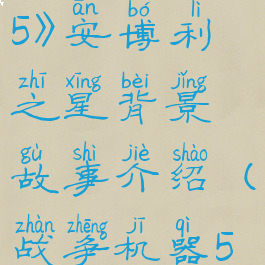 ān bó lì
5》安博利
zhī xīng bèi jǐng
之星背景
gù shì jiè shào
故事介绍（
zhàn zhēng jī qì
战争机器5